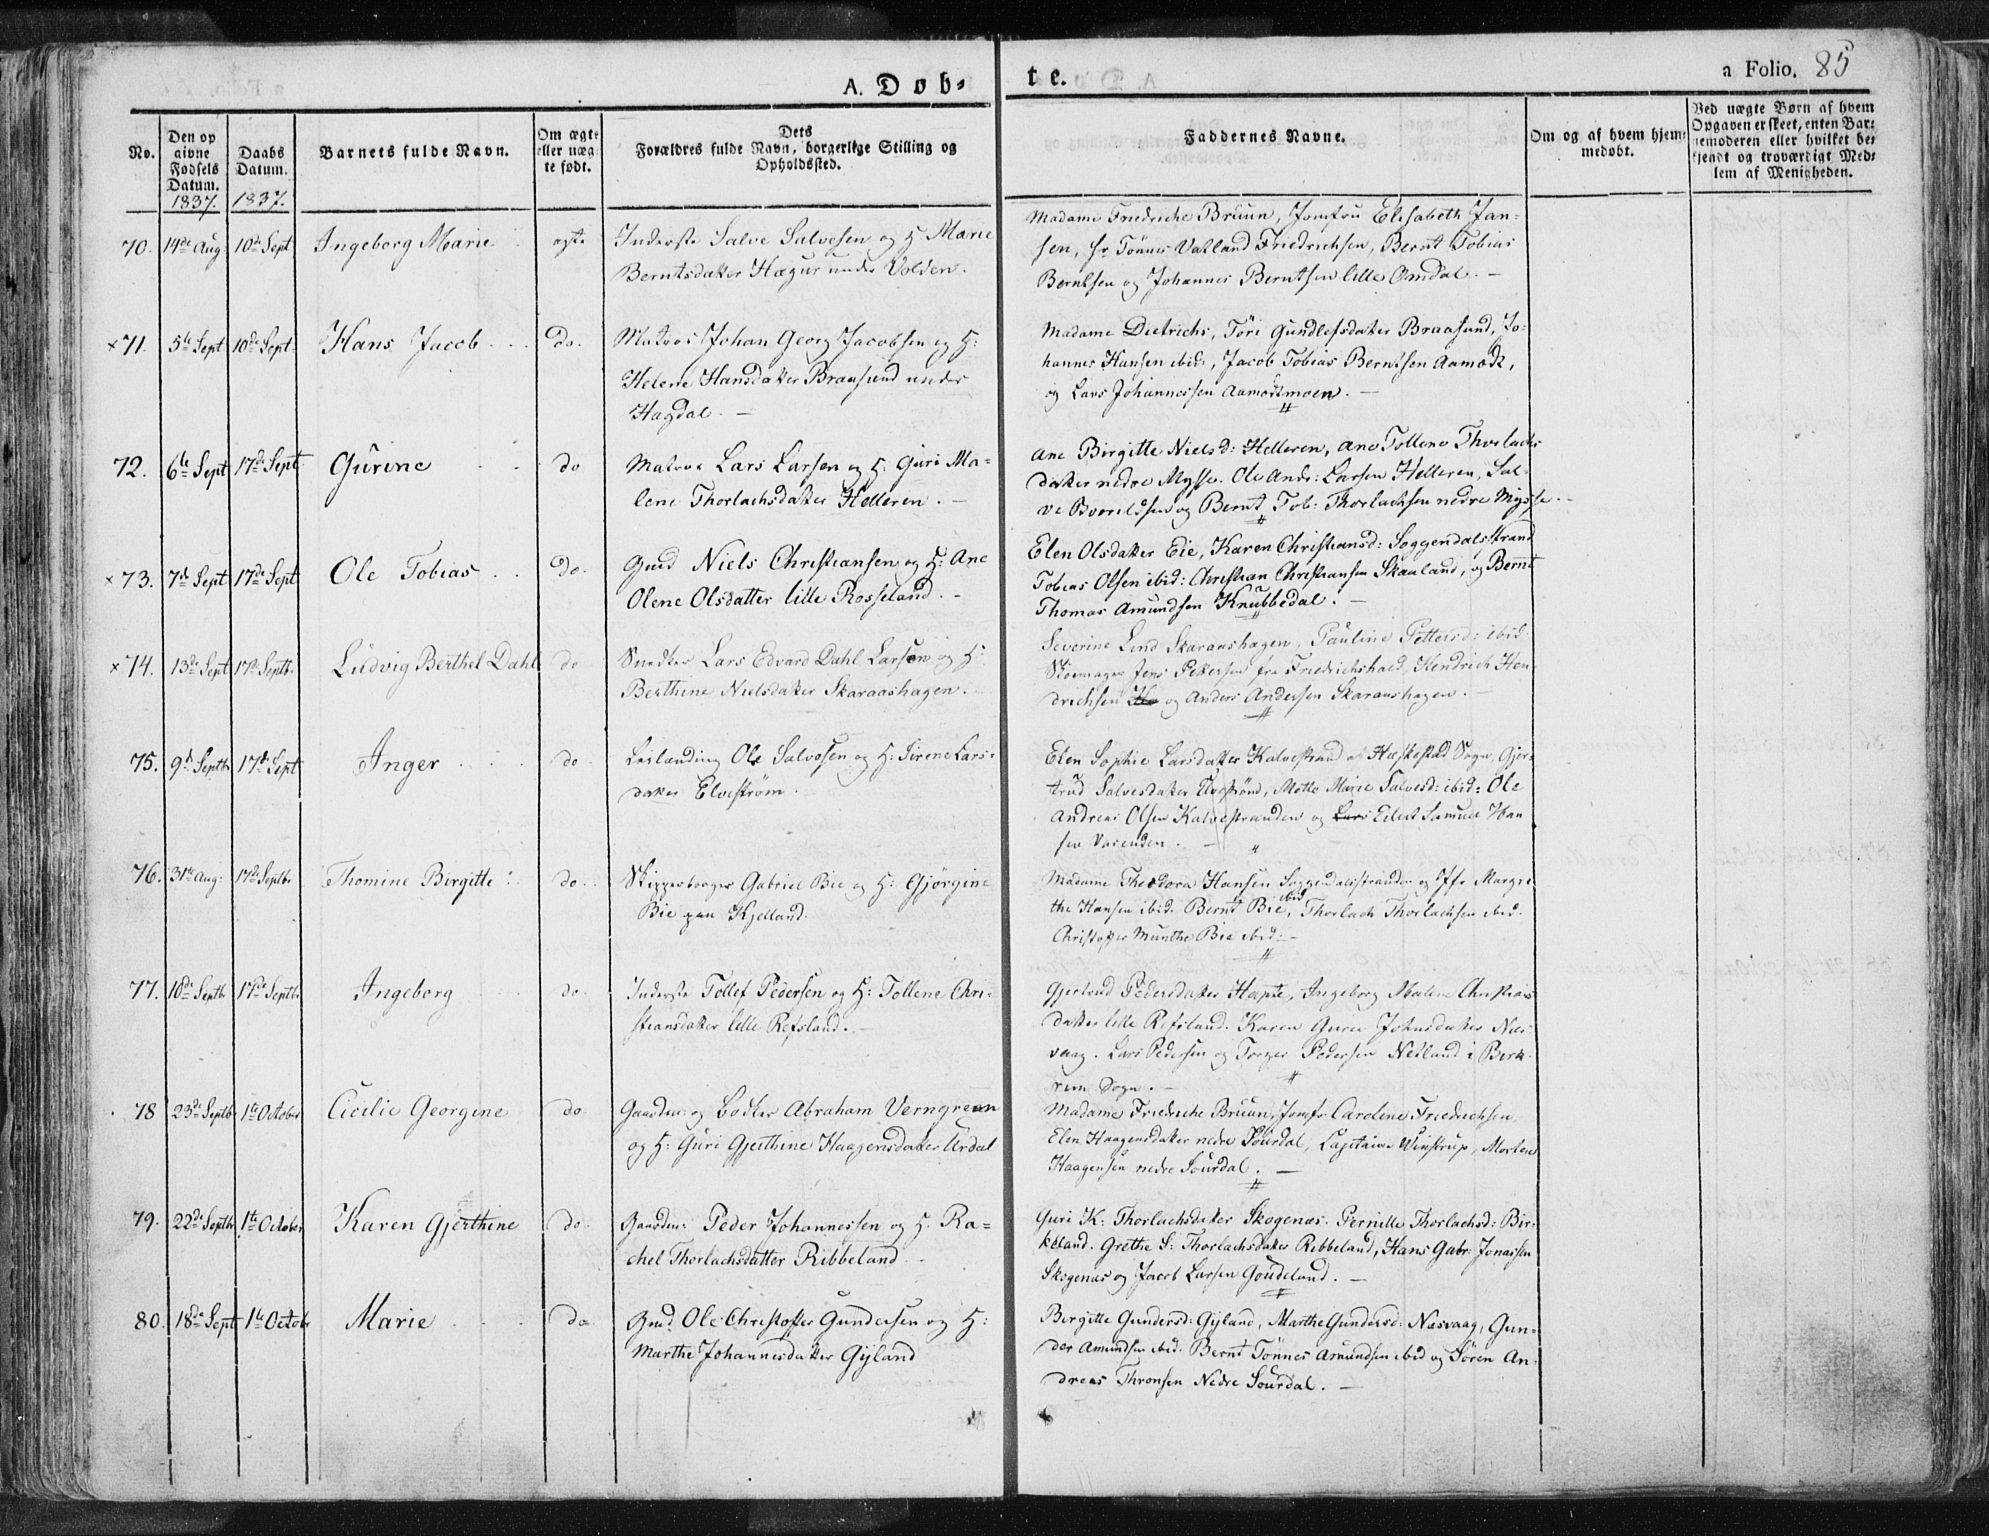 A. Döb-
te.
a Folio. 85
No.
Den op
givne
Fødsels
Datum.
1837.
Daabs
Datum.
1837.
Barnets fulde Navn.
Om ægte
eller uæg-
te født.
Dets
Forældres fulde Navn, borgerlige Stilling og
Opholdssted.
Faddernes Navne.
Om og af hvem hjem-
medøbt.
Ved uægte Børn af hvem
Opgaven er skeet, enten Bar-
nemoderen eller hvilket be-
kjendt og troværdigt Med-
lem af Menigheden.
70. 14de Aug 10de Sept Ingeborg Marie ægte Inderste Salve Salvesen og H. Marie
Berntsdatter Hægur under Volden.
Madame Friedriche Bruun, Jomfru Elisabeth Jan-
sen, Hr Tönnes Vatland Friedrichsen, Bernt Tobias
Berntsen og Johannes Berntsen lille Omdal. -
×71. 5te Sept 10de Sept Hans Jacob do. Matros Johan Georg Jacobsen og H:
Helene Hansdatter Braasund under
Hagdal. -
Madame Dietrichs, Töri Gundlefsdatter Braasund, Jo-
hannes Hansen ibid:, Jacob Tobias Berntsen Aamodt,
og Lars Johannessen Aamodtmoen. -
72. 6te Sept 17de Sept Gurine do Matros Lars Larsen og H: Guri Ma-
lene Thorlachsdatter Helleren. -
Ane Birgitte Nielsd: Helleren, Ane Tollene Thorlachs
datter nedre Mysse. Ole Andr: Larsen Helleren, Sal-
ve Boreildsen og Bernt Tob: Thorlachsen nedre Mysse. -
×73. 7de Sept 17de Sept Ole Tobias do. Gmd Niels Christiansen og H: Ane
Olene Olsdatter lille Rosseland. -
Elen Olsdatter Eie, Karen Christiansd: Soggendalsstrand
Tobias Olsen ibid: Christian Christiansen Skaaland, og Bernt
Thomas Amundsen Knubbedal. -
×74. 13de Sept 17de Septb. Ludvig Berthel Dahl do Snedker Lars Edvard Dahl Larsen og H:
Berthine Nielsdatter Skaraashagen. -
Severine Lund Skaraashagen, Pauline Pettersd: ibid.
Skoemager Jens Pettersen fra Friedrichshald, Hendrich Hen
drichsen og Anders Andersen Skaraashagen. -
75. 9de Septbr 17de Sept Inger do Leilænding Ole Salvesen og H: Sirene Lars-
datter Elvestrøm.
Elen Sophie Larsdatter Kalvestrand af Heskestad Sogn, Gjer-
trud Salvesdatter Elvestrøm, Mette Marie Salvesd: ibid: Ole
Andreas Olsen Kalvestranden og Lars Eilert Samuel Han
sen Varenden. -
76. 31te Aug: 17de Septbr Thomine Birgitte do. Skipperborger Gabriel Bie og H: Gjørgine
Bie paa Kjelland.
Madame Theodora Hansen Soggendalsstranden og Jfr Margre
the Hansen ibid. Bernt Bie ibid, Thorlach Thorlachsen ibid.
Christoffer Munthe Bie ibid: -
77. 10de Septbr 17de Septbr Ingeborg do. Inderste Tollef Pedersen og H: Tollene Chri-
stiansdatter lille Refsland. -
Gjertrud Pedersdatter Hapte, Ingeborg Malene Christians
datter lille Refsland. Karen Gurie Johnsdatter Næs
vaag. Lars Pedersen og Torger Pedersen Netland i Birk-
rem Sogn. -
78 23de Septb 1te October Cicilie Georgine do. Gaardm: og Bødker Abraham Verngreen
og H: Guri Gjerthine Haagensdatter Urdal
Madame Friedriche Bruun, Jomfr Carolene Friedrichsen,
Elen Haagensdatter nedre Sourdal, Capitaine Winstrup, Morten
Haagensen nedre Sourdal. -
79. 22de Septbr 1te October Karen Gjerthine do. Gaardm: Peder Johannessen og H. Ra-
chel Thorlachsdatter Ribbeland.
Guri K: Thorlachsdatter Skogenæs. Pernille Thorlachsd: Bir-
keland. Grethe S: Thorlachsdatter Ribbeland, Hans Gabr: Jonassen
Skogenæs og Jacob Larsen Goudeland. -
80. 18de Sept 1te Octobr Marie do Gmd. Ole Christoffer Gundersen og H:
Marthe Johannesdatter Gyland
Birgitte Gundersd: Gyland, Marthe Gundersd: Næsvaag, Gun-
der Amundsen ibid. Bernt Tönnes Amundsen ibid og Sören An-
dreas Thronsen Nedre Sourdal. -